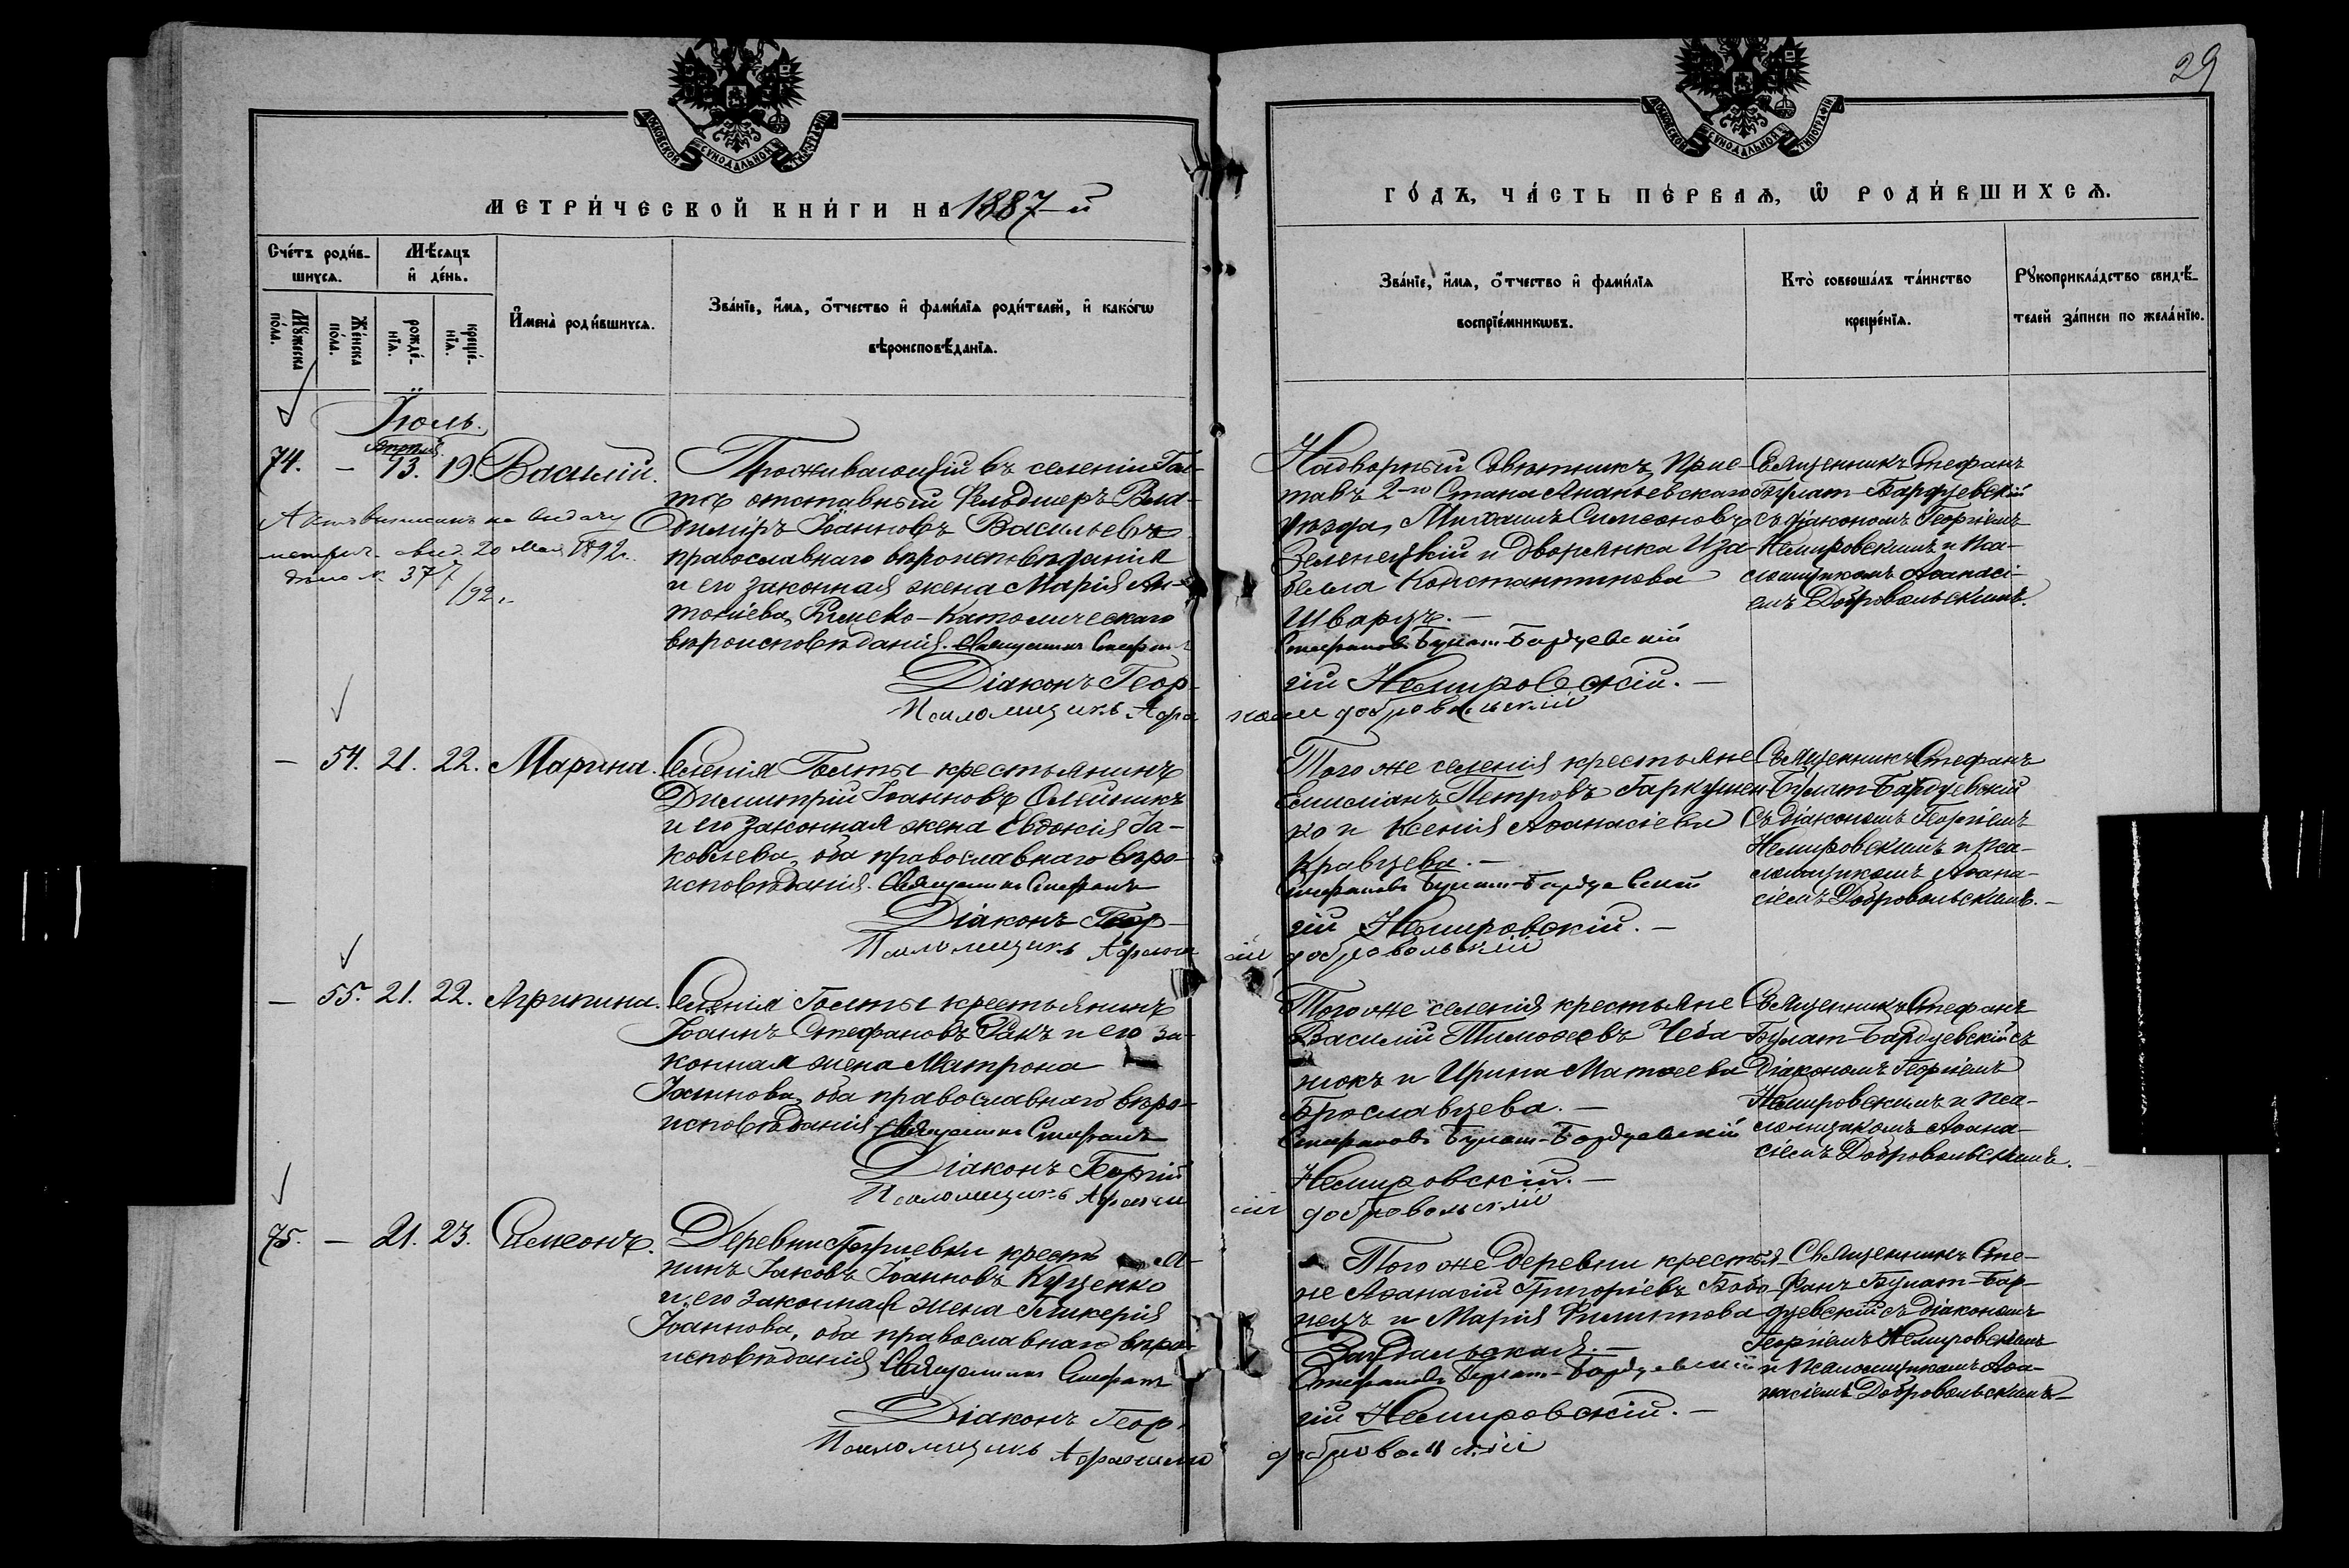 29
МОСКОВСКОЙ СУНОДАЛЬНОЙ ТИПОГРАФІИ
МОСКОВСКОЙ СУНОДАЛЬНОЙ ТИПОГРАФІИ
МЕТРИ́ЧЕСКОЙ КНИ́ГИ НА 1887-й
ГО́ДЪ, ЧА́СТЬ ПЕ́РВАЯ, Ѿ РОДИ́ВШИХСЯ.
Сче́тъ роди́в-
шихся.
Му́жеска по́ла.
Же́нска по́ла.
Мѣ́сяцъ
и҆ де́нь.
рожде́-
нїя.
креще́-
нїя.
И҆мена̀ роди́вшихся.
Зва́нїе, и҆́мя, ѻ҆́тчество и҆ фами́лїя роди́телей, и҆ како́гѡ
вѣроисповѣ́данїя.
Зва́нїе, и҆́мя, ѻ҆́тчество и҆ фами́лїя
воспрїе́мникѡвъ.
Кто̀ соверша́лъ та́инство
креще́нїя.
Рꙋкоприкла́дство свидѣ́-
телей за́писи по жела́нїю.
Іюль.
74. — 13. 19. Василій.
Проживающій въ селеніи Гол-
тѣ отставный Фельдшеръ Вла-
димiръ Іоанновъ Васильевъ
православнаго вѣроисповѣданія
и его законная жена Марія Ан-
тоніева, Римско-Католическаго
вѣроисповѣданія. Священникъ Стефанъ
Діаконъ Геор-
Псаломщикъ Афа
метрич. свид. 20 Мая 1892 г.
дѣло № 377
/92 г.
Надворный Совѣтникъ, Прис-
тавъ 2-го Стана Ананьевскаго
уѣзда, Михаилъ Симеоновъ
Зеленецкій и дворянка Иза-
белла Константинова
Шварцъ. —
Стефановъ Булат-Бардуевскій
гій Немировскій. —
добровольскій
Священникъ Стефанъ
Булат-Бардуевскій
съ діакономъ Георгіемъ
Немировскимъ и пса-
ломщикомъ Аѳанасі-
емъ Добровольскимъ.
— 54. 21. 22. Марина.
Селенія Голты крестьянинъ
Димитрій Іоанновъ Олейникъ
и его законная жена Евдокія Іа-
ковлева, оба православнаго вѣро-
исповѣданія. Священникъ Стефанъ
Діаконъ Геор-
Псаломщикъ Афанас
Того же селенія крестьяне
Емиліанъ Петровъ Гаркушен-
ко и Ксенія Аѳанасіева
Кравцева. —
Стефановъ Булат-Бардуевскій
гій Немировскій. —
сій добровольскій
Священникъ Стефанъ
Булат-Бардуевскій
съ діакономъ Георгіемъ
Немировскимъ и пса-
ломщикомъ Аѳана-
сіемъ Добровольскимъ. —
— 55. 21. 22. Агрипина.
Селенія Голты крестьянинъ
Іоаннъ Стефановъ Ракъ и его за-
конная жена Матрона
Іоаннова, оба православнаго вѣро-
исповѣданія. Священникъ Стефанъ
Діаконъ Георгій
Псаломщикъ Афанас
Того же селенія крестьяне
Василій Тимоѳеевъ Чеба-
нюкъ и Ирина Матѳеева
Брославцева. —
Стефановъ Булат-Бардуевскій
Немировскій. —
сій добровольскій
Священникъ Стефанъ
Булат-Бардуевскій съ
Діакономъ Георгіемъ
Немировскимъ и пса-
ломщикомъ Аѳана-
сіемъ Добровольскимъ. —
75. — 21. 23. Симеонъ.
Деревни крестья-
нинъ Іаковъ Іоанновъ Куценко
и его законная жена Гликерія
Іоаннова, оба православнаго вѣро-
исповѣданія Священникъ Стефанъ
Діаконъ Геор-
Псаломщикъ Афанасій
Того же Деревни крестья-
не Аѳанасій Григоріевъ Бабо-
нецъ и Марія Филиппова
Стефановъ Булат-Бардуевскій
гій Немировскій. —
добровольскій
Священникъ Сте-
фанъ Булат-Бар-
дуевскій съ діакономъ
Георгіемъ Немировскимъ
и Псаломщикомъ Аѳа-
насіемъ Добровольскимъ —